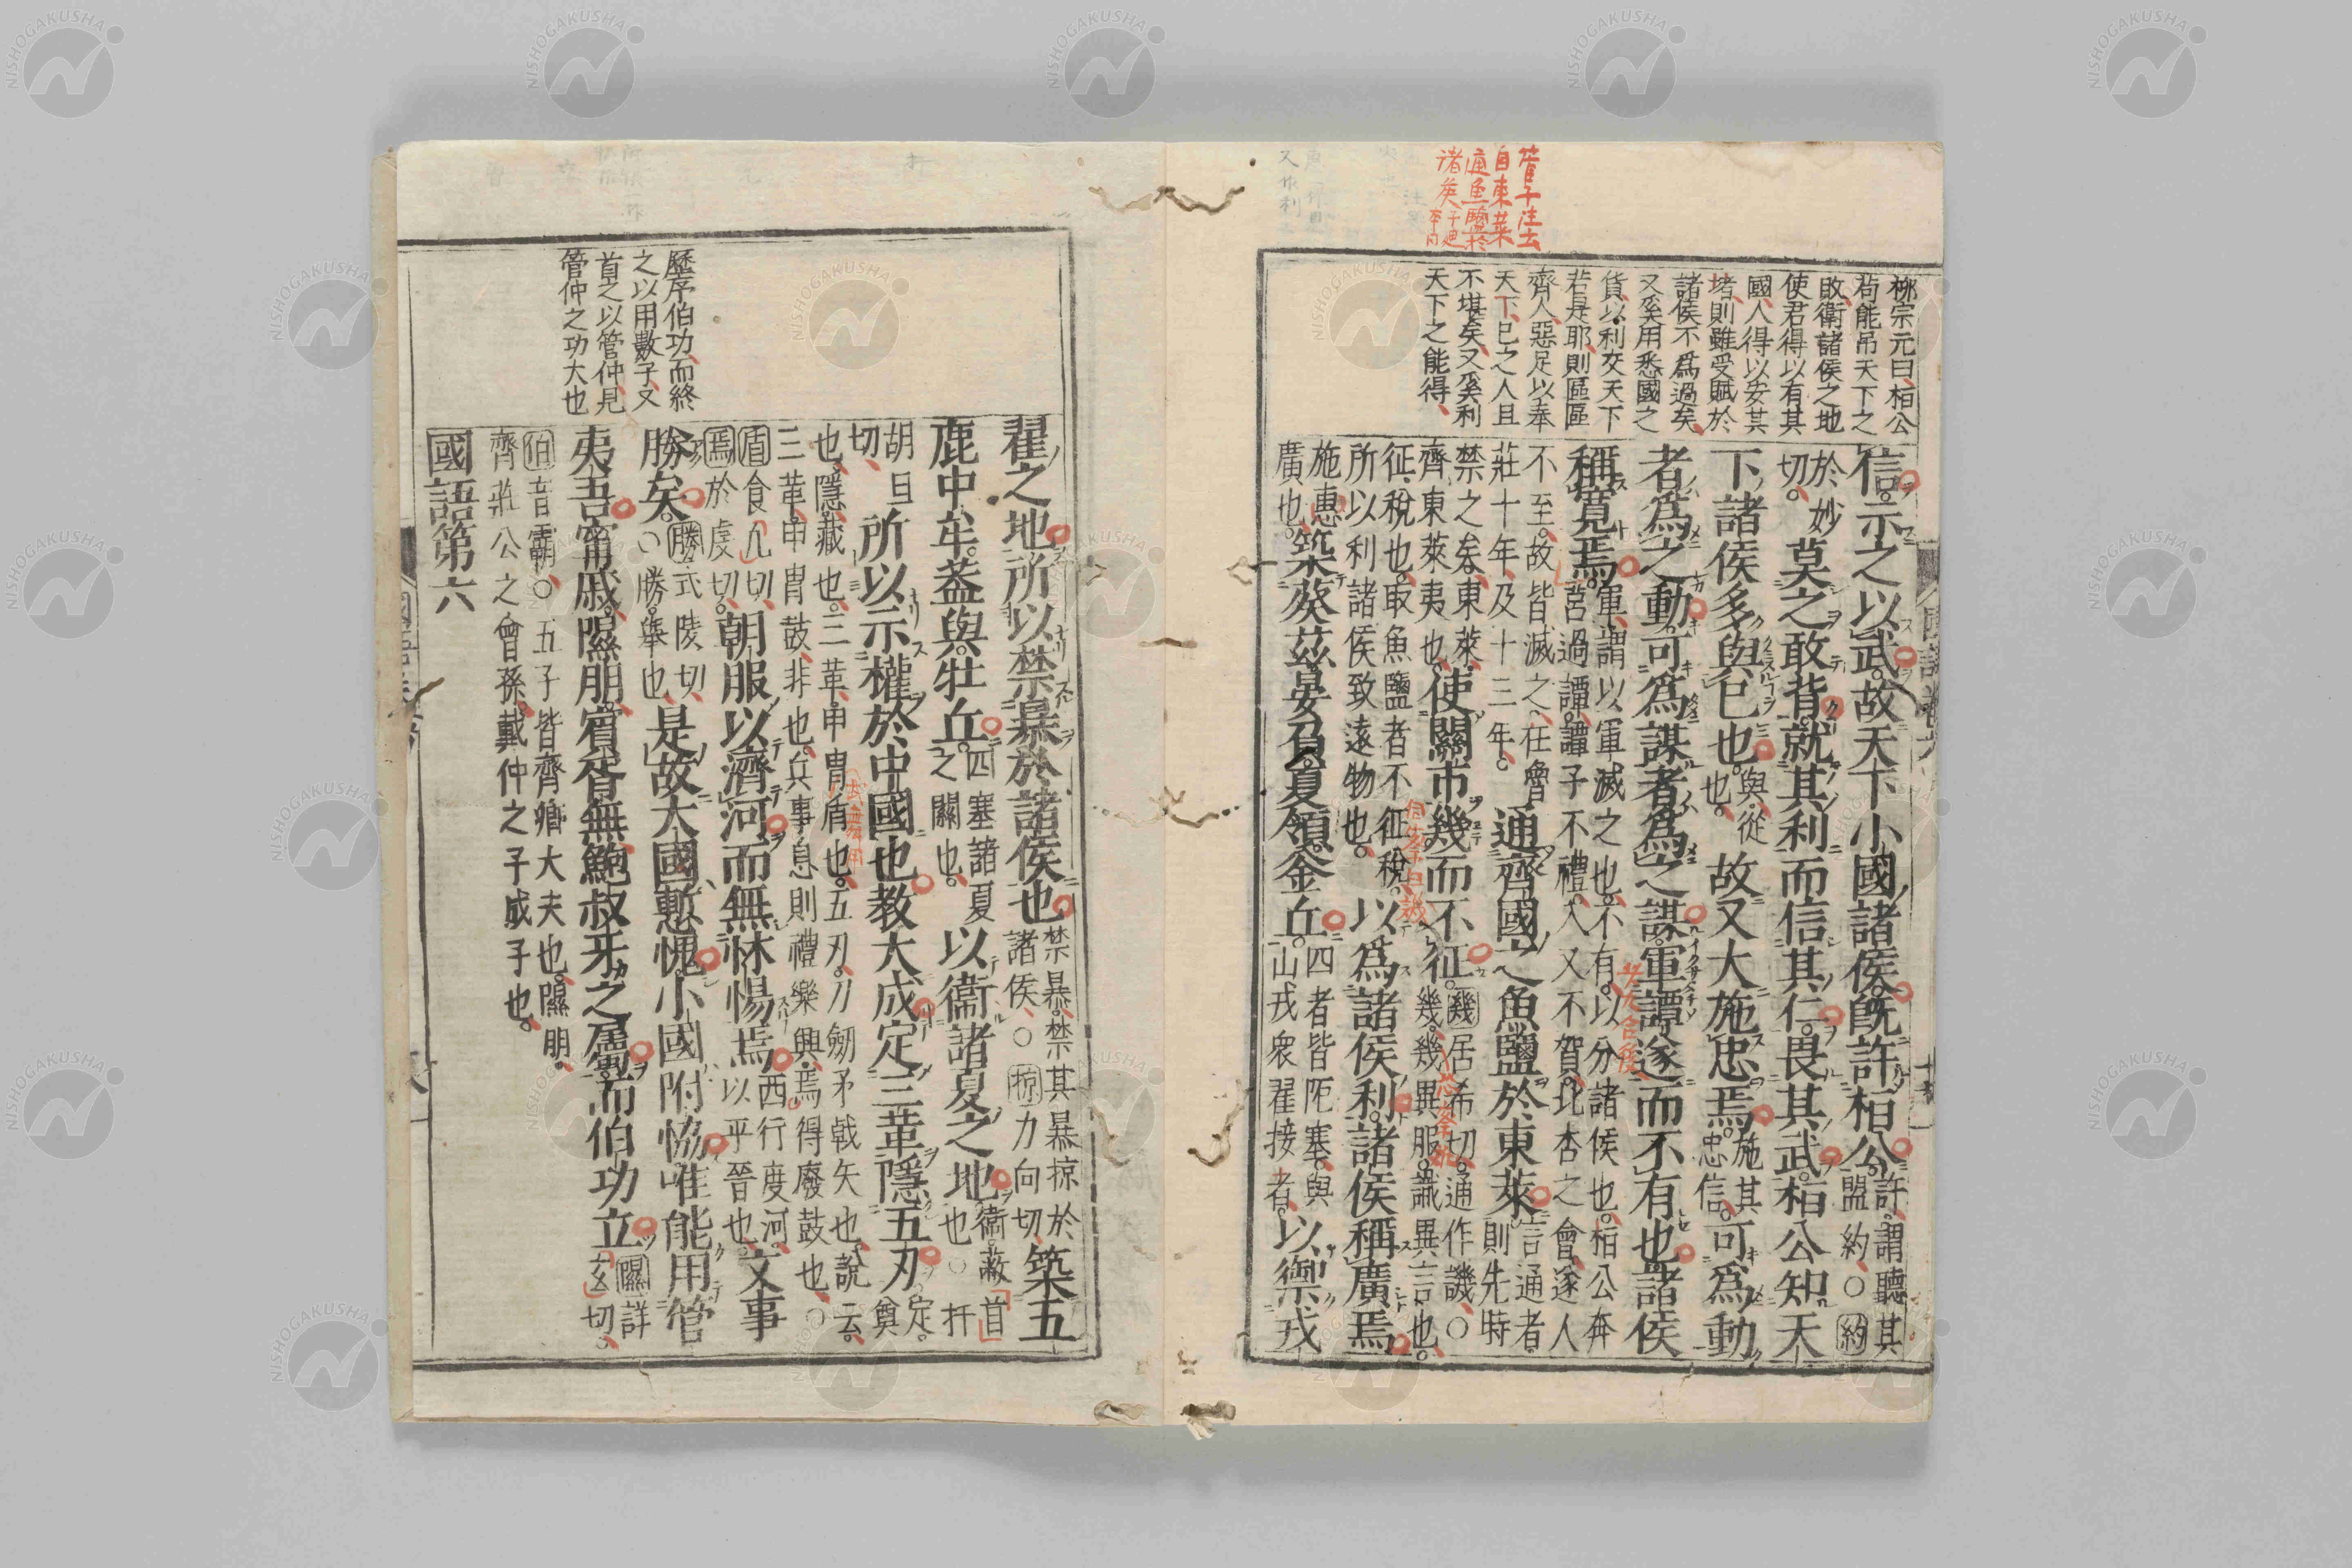 管子注云
自東萊
通魚鹽於
諸侯
柳宗元曰桓公
苟能吊天下之
敗衛諸侯之地
使君得以有其
國人得以安其
堵則雖受賦於
諸侯不爲過矣
又奚用悉國之
貨以利交天下
若是耶則區區
齊人惡足以奉
天下已之人且
不堪矣又奚利
天下之能得
信示之以武故天下小國諸侯旣許桓公許謂聽其
盟約○約
於妙
切莫之敢背就其利而信其仁畏其武桓公知天
下諸侯多與已也與從
也故又大施忠焉施其
忠信可爲動
者爲之動可爲謀者爲之謀軍譚遂而不有也諸侯
稱寬焉軍謂以軍滅之也不有以分諸侯也桓公奔
莒過譚譚子不禮入又不賀北杏之會遂人
不至故皆滅之在魯
莊十年及十三年通齊國之魚鹽於東萊言通者
則先時
禁之矣東萊
齊東萊夷也使關市幾而不征幾居希切通作譏○
幾幾異服識異言也
征稅也取魚鹽者不征稅
所以利諸侯致遠物也以爲諸侯利諸侯稱廣焉
施惠
廣也築葵茲晏負夏領金丘四者皆阨塞與
山戎衆翟接者以禦戎
翟之地所以禁暴於諸侯也禁暴禁其暴掠於
諸侯○掠力向切築五
鹿中牟蓋與牡丘四塞諸夏
之關也以衞諸夏之地衞蔽
也○扞
胡旦
切所以示權於中國也教大成定三革隱五刃定奠
也隱藏也三革甲冑盾也五刃刀劒矛戟矢也說云
三革甲冑鼓非也兵事息則禮樂興焉得廢鼓也○
盾食允切
焉於虔切朝服以濟河而無怵惕焉西行度河
以平晉也文事
勝矣勝式陵切
○勝舉也是故大國慙愧小國附協唯能用管
夷吾甯戚隰朋賓胥無鮑叔牙之屬而伯功立隰詳
切
伯音霸○五子皆齊卿大夫也隰朋
齊莊公之曾孫戴仲之子成子也
國語第六
歷序伯功而終
之以用數子又
首之以管仲見
管仲之功大也